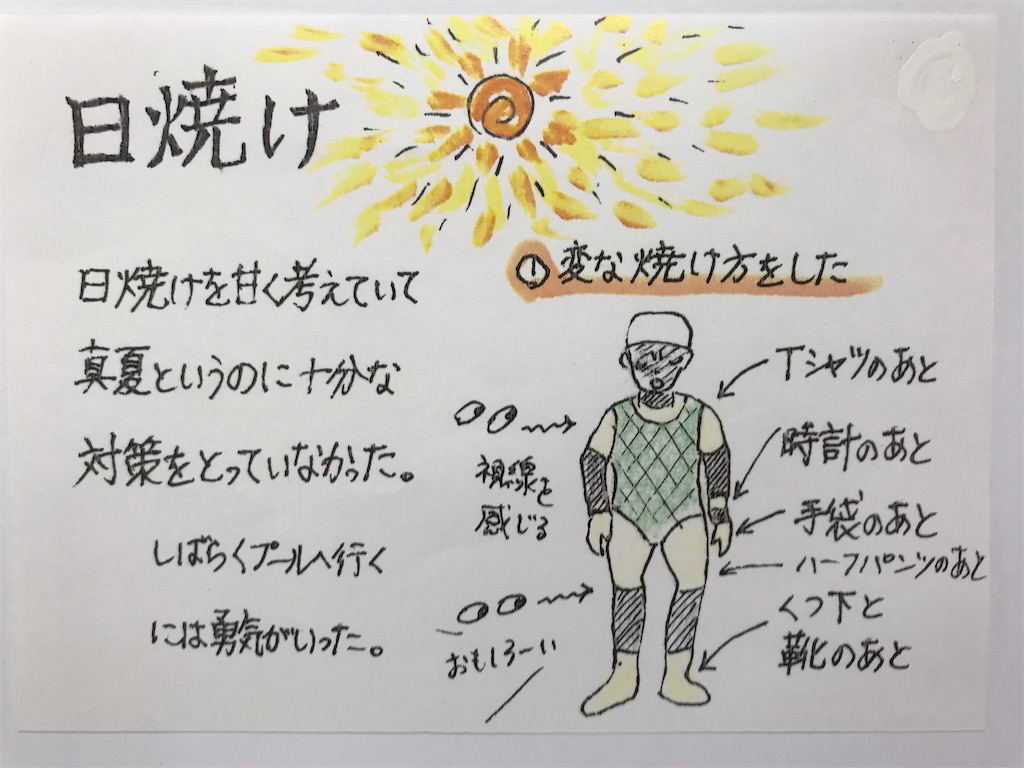 日焼け
日焼けを甘く考えていて
真夏というのに十分な
対策をとっていなかった。
しばらくプールへ行く
には勇気がいった。
① 変な焼け方をした
Tシャツのあと
時計のあと
手袋のあと
ハーフパンツのあと
くつ下と
靴のあと
視線を
感じる
おもしろーい